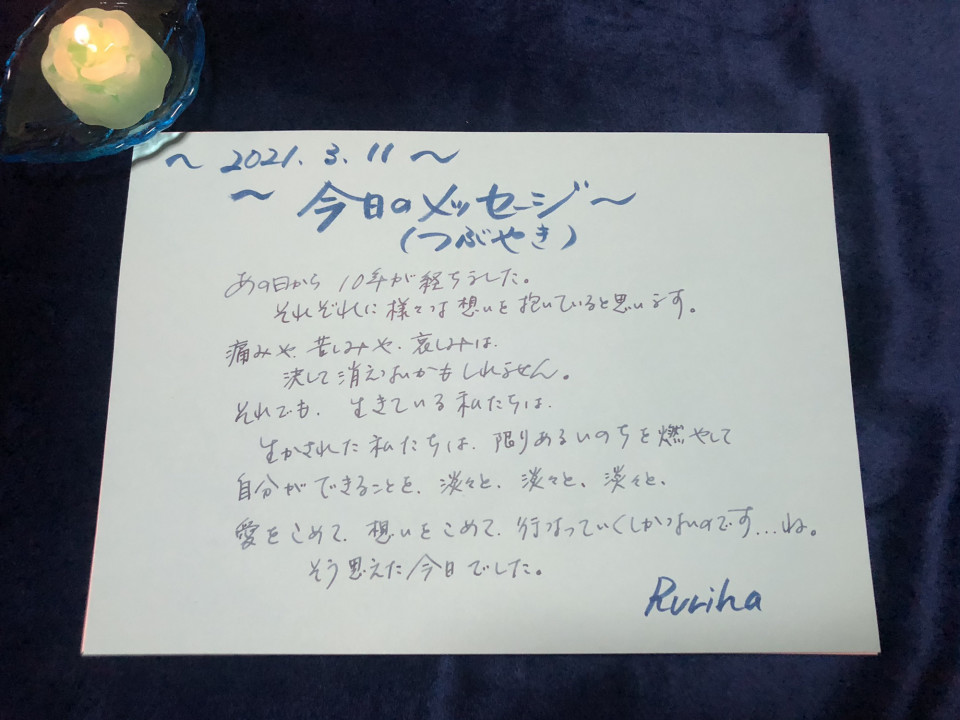 ～ 2021. 3. 11 ～
～ 今日のメッセージ ～
(つぶやき)
あの日から 10年が経ちました。
それぞれに様々な想いを抱いていると思います。
痛みや、苦しみや、哀しみは、
決して消えないかもしれません。
それでも、生きている私たちは、
生かされた私たちは、限りあるいのちを燃やして
自分ができることを、淡々と、淡々と、淡々と、
愛をこめて、想いをこめて、行なっていくしかないのです…ね。
そう思えた今日でした。
Ruriha